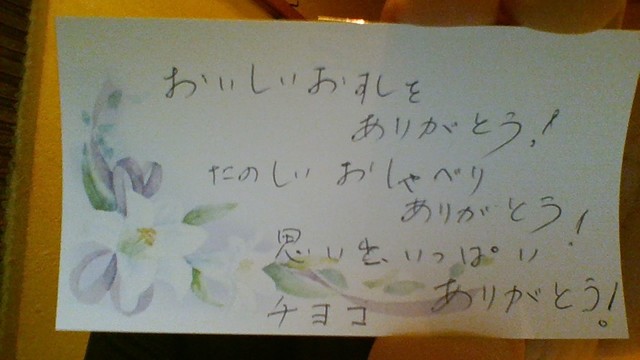 おいしいおすしを
ありがとう!
たのしい おしゃべり
ありがとう!
思い出いっぱい
ありがとう!
チヨコ